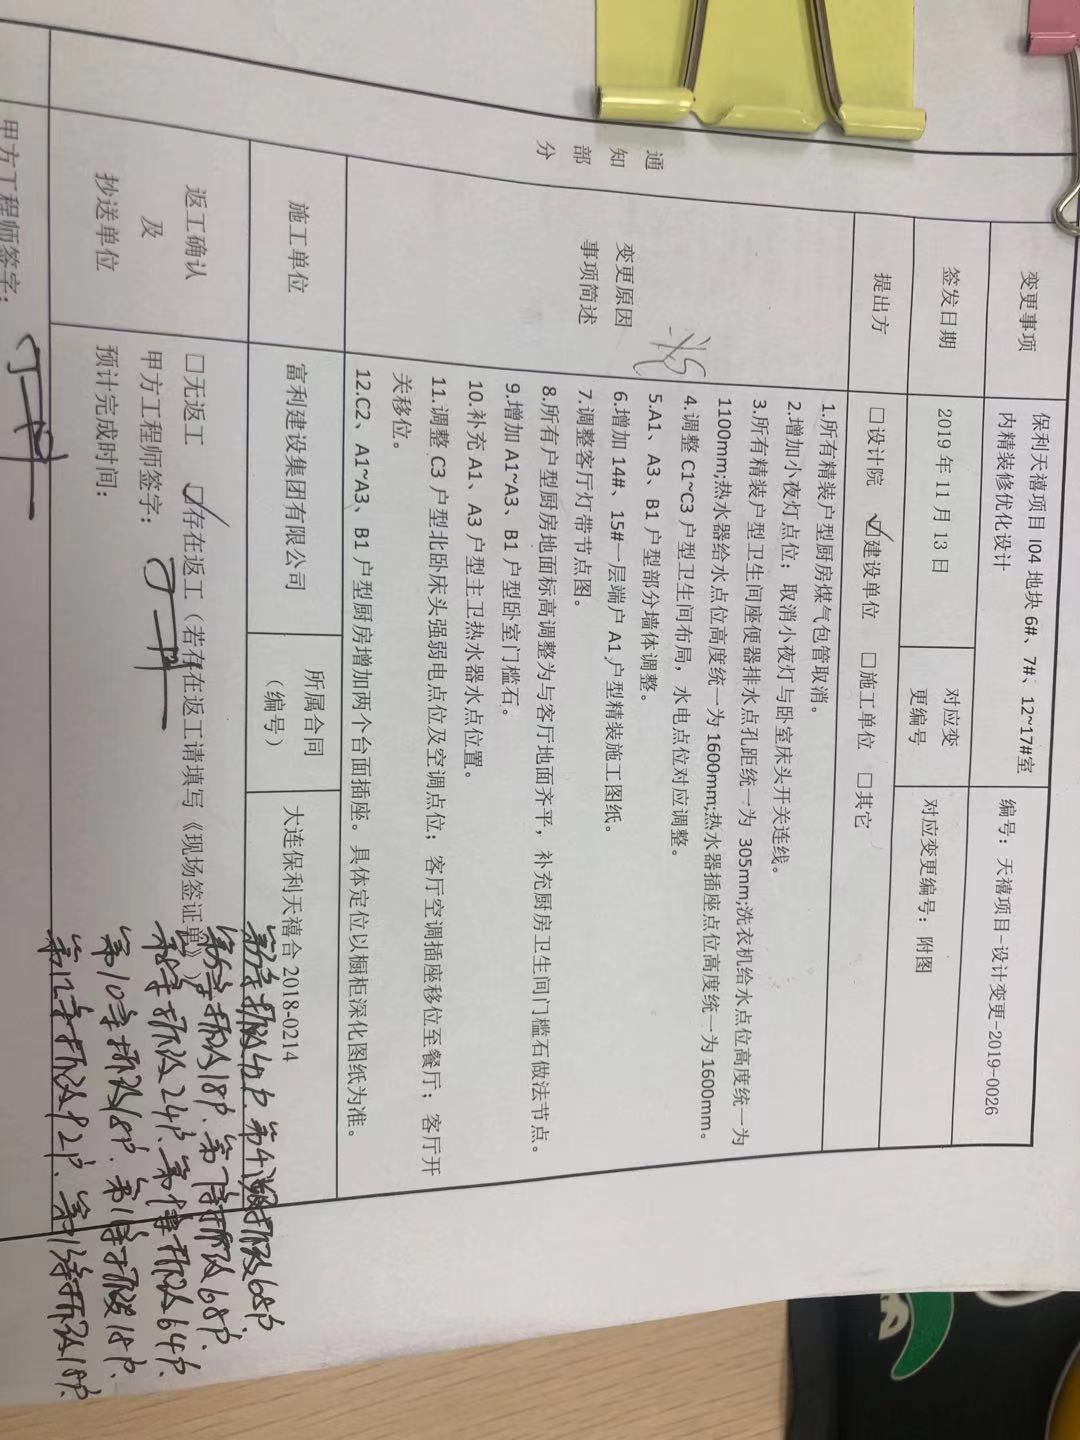 变更事项
保利天禧项目 I04 地块 6#、7#、12~17#室
内精装修优化设计
编号：天禧项目-设计变更-2019-0026
签发日期
2019 年 11 月 13 日
对应变
更编号
对应变更编号：附图
提出方
□设计院 ☑建设单位 □施工单位 □其它
通知部分
变更原因
事项简述
1.所有精装户型厨房煤气包管取消。
2.增加小夜灯点位；取消小夜灯与卧室床头开关连线。
3.所有精装户型卫生间座便器排水点孔距统一为 305mm;洗衣机给水点位高度统一为
1100mm;热水器给水点位高度统一为 1600mm;热水器插座点位高度统一为 1600mm。
4.调整 C1~C3 户型卫生间布局，水电点位对应调整。
5.A1、A3、B1 户型部分墙体调整。
6.增加 14#、15#一层端户 A1 户型精装施工图纸。
7.调整客厅灯带节点图。
8.所有户型厨房地面标高调整为与客厅地面齐平，补充厨房卫生间门槛石做法节点。
9.增加 A1~A3、B1 户型卧室门槛石。
10.补充 A1、A3 户型主卫热水器水点位置。
11.调整 C3 户型北卧床头强弱电点位及空调点位；客厅空调插座移位至餐厅；客厅开
关移位。
12.C2、A1~A3、B1 户型厨房增加两个台面插座。具体定位以橱柜深化图纸为准。
施工单位
富利建设集团有限公司
所属合同
（编号）
大连保利天禧合 2018-0214
返工确认
及
抄送单位
□无返工 ☑存在返工（若存在返工请填写《现场签证单》）
甲方工程师签字：
预计完成时间：
甲方工程师签字：